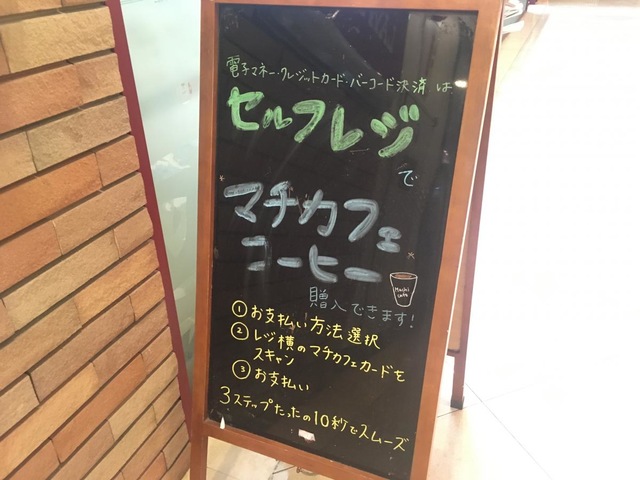 電子マネー・クレジットカード・バーコード決済は
セルフレジ
で
マチカフェ
コーヒー
Machi
cafe
贈入できます!
①お支払い方法選択
②レジ横のマチカフェカードを
スキャン
③お支払い
3ステップたったの10秒でスムーズ